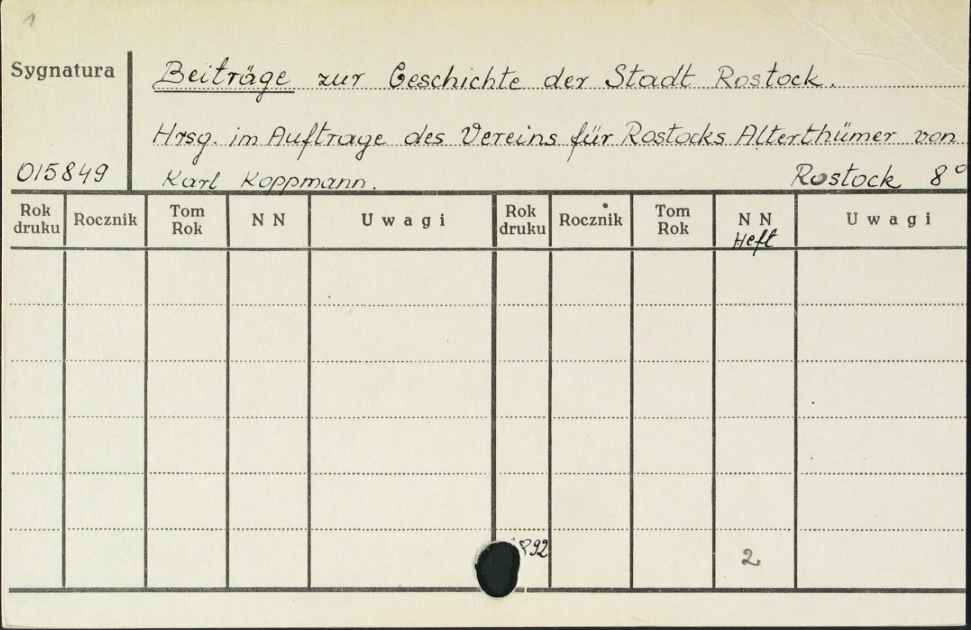 1
Sygnatura
Beiträge zur Geschichte der Stadt Rostock.
Hrsg. im Auftrage des Vereins für Rostocks Alterthümer von
015849 Karl Koppmann. Rostock 8°
Rok druku Rocznik Tom Rok N N U w a g i Rok druku Rocznik Tom Rok N N Heft U w a g i
892 2